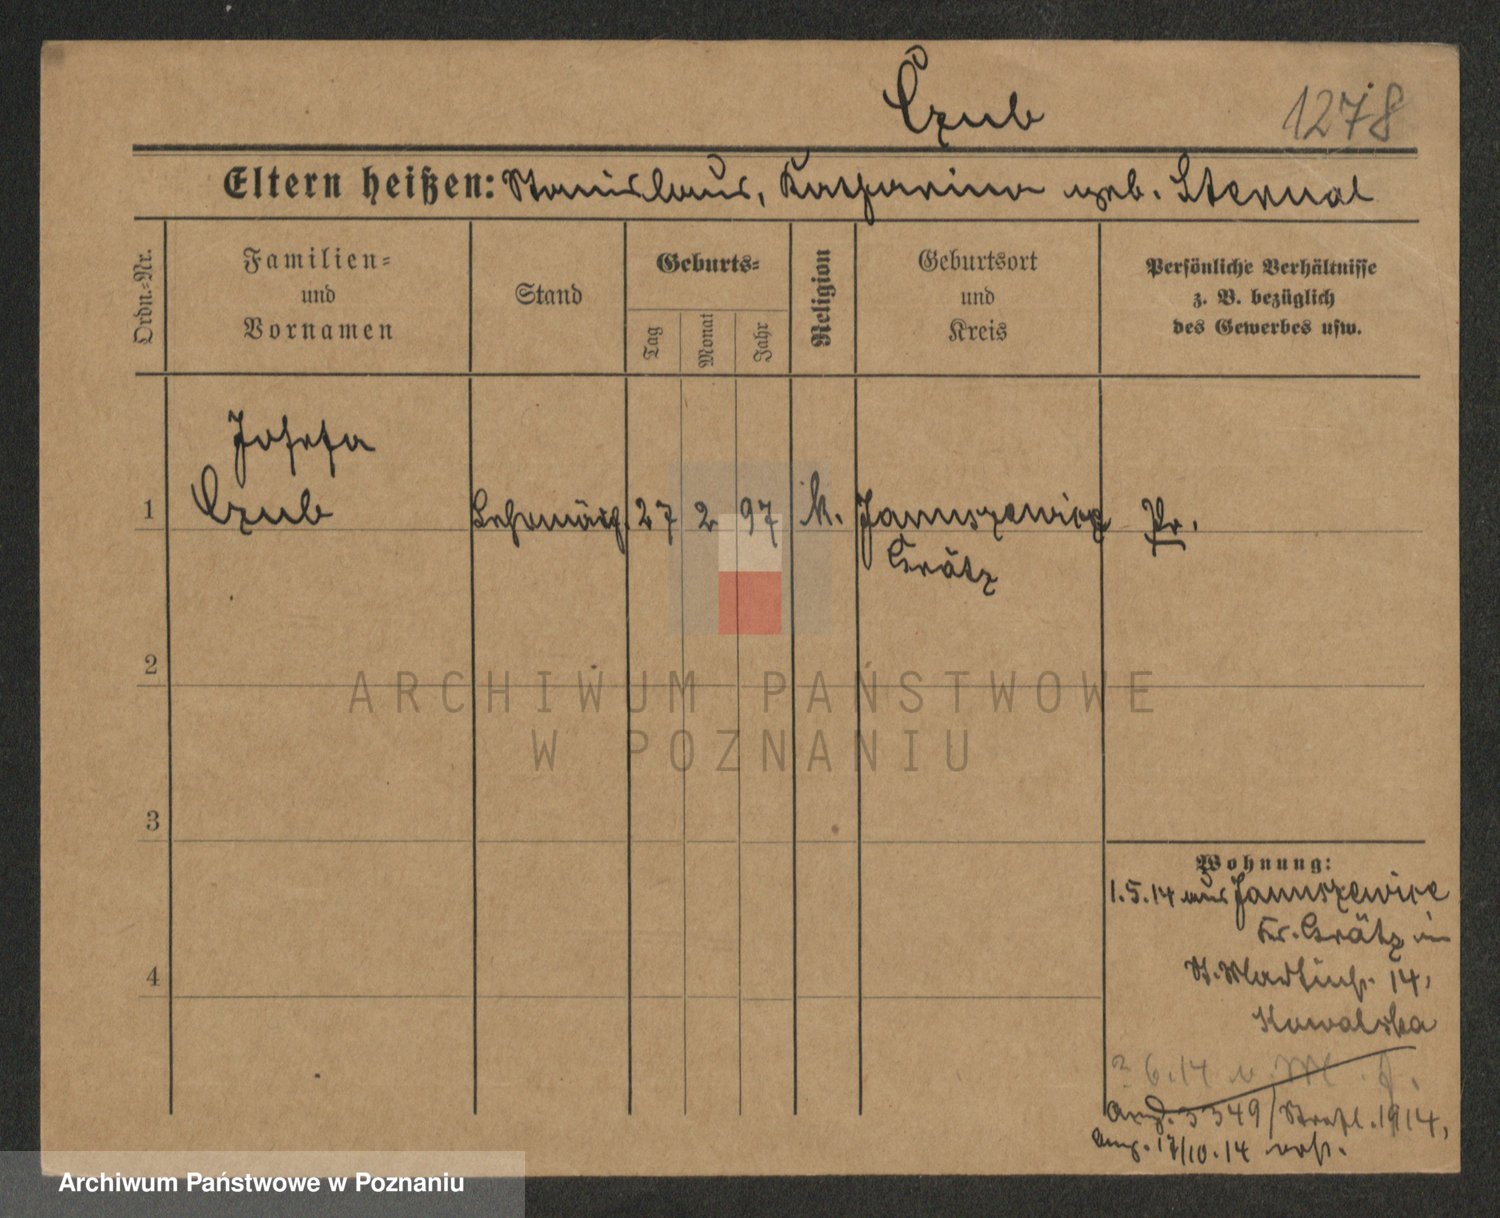 Czub
1278
Eltern heißen: Stanislaus, Katharina geb. Sternal
Ordn.-Nr.
Familien-
und
Vornamen
Stand
Geburts-
Tag
Monat
Jahr
Religion
Geburtsort
und
Kreis
Persönliche Verhältnisse
z. B. bezüglich
des Gewerbes usw.
Josefa
1 Czub Lehrmädch. 27 2 97 k. Januszewice Pr.
Grätz
2
3
4
Wohnung:
1.5.14 aus Januszewice
Kr. Grätz in
St. Martinstr. 14,
Kowalska
6.14
3349/ 1914,
17/10.14
ARCHIWUM PAŃSTWOWE
W POZNANIU
Archiwum Państwowe w Poznaniu